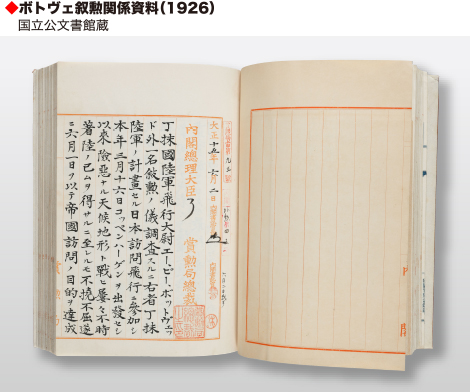 ◆ボトヴェ叙勲関係資料（1926）
国立公文書館蔵
大正十五年六月二日
内閣總理大臣
賞勲局總裁
丁抹國陸軍飛行大尉エー、ピー、ボットヴェッ
ド外一名敍勲ノ儀調査スルニ右者丁抹
陸軍ノ計畫セル日本訪問飛行ニ參加シ
本年三月十六日コッペンハーゲンヲ出發セシ
以來險惡ナル天候地形ト戰ヒ屢々不時
著陸ノ已ムヲ得サルニ至レルモ不撓不屈遂
ニ六月一日ヲ以テ帝國訪問ノ目的ヲ達成